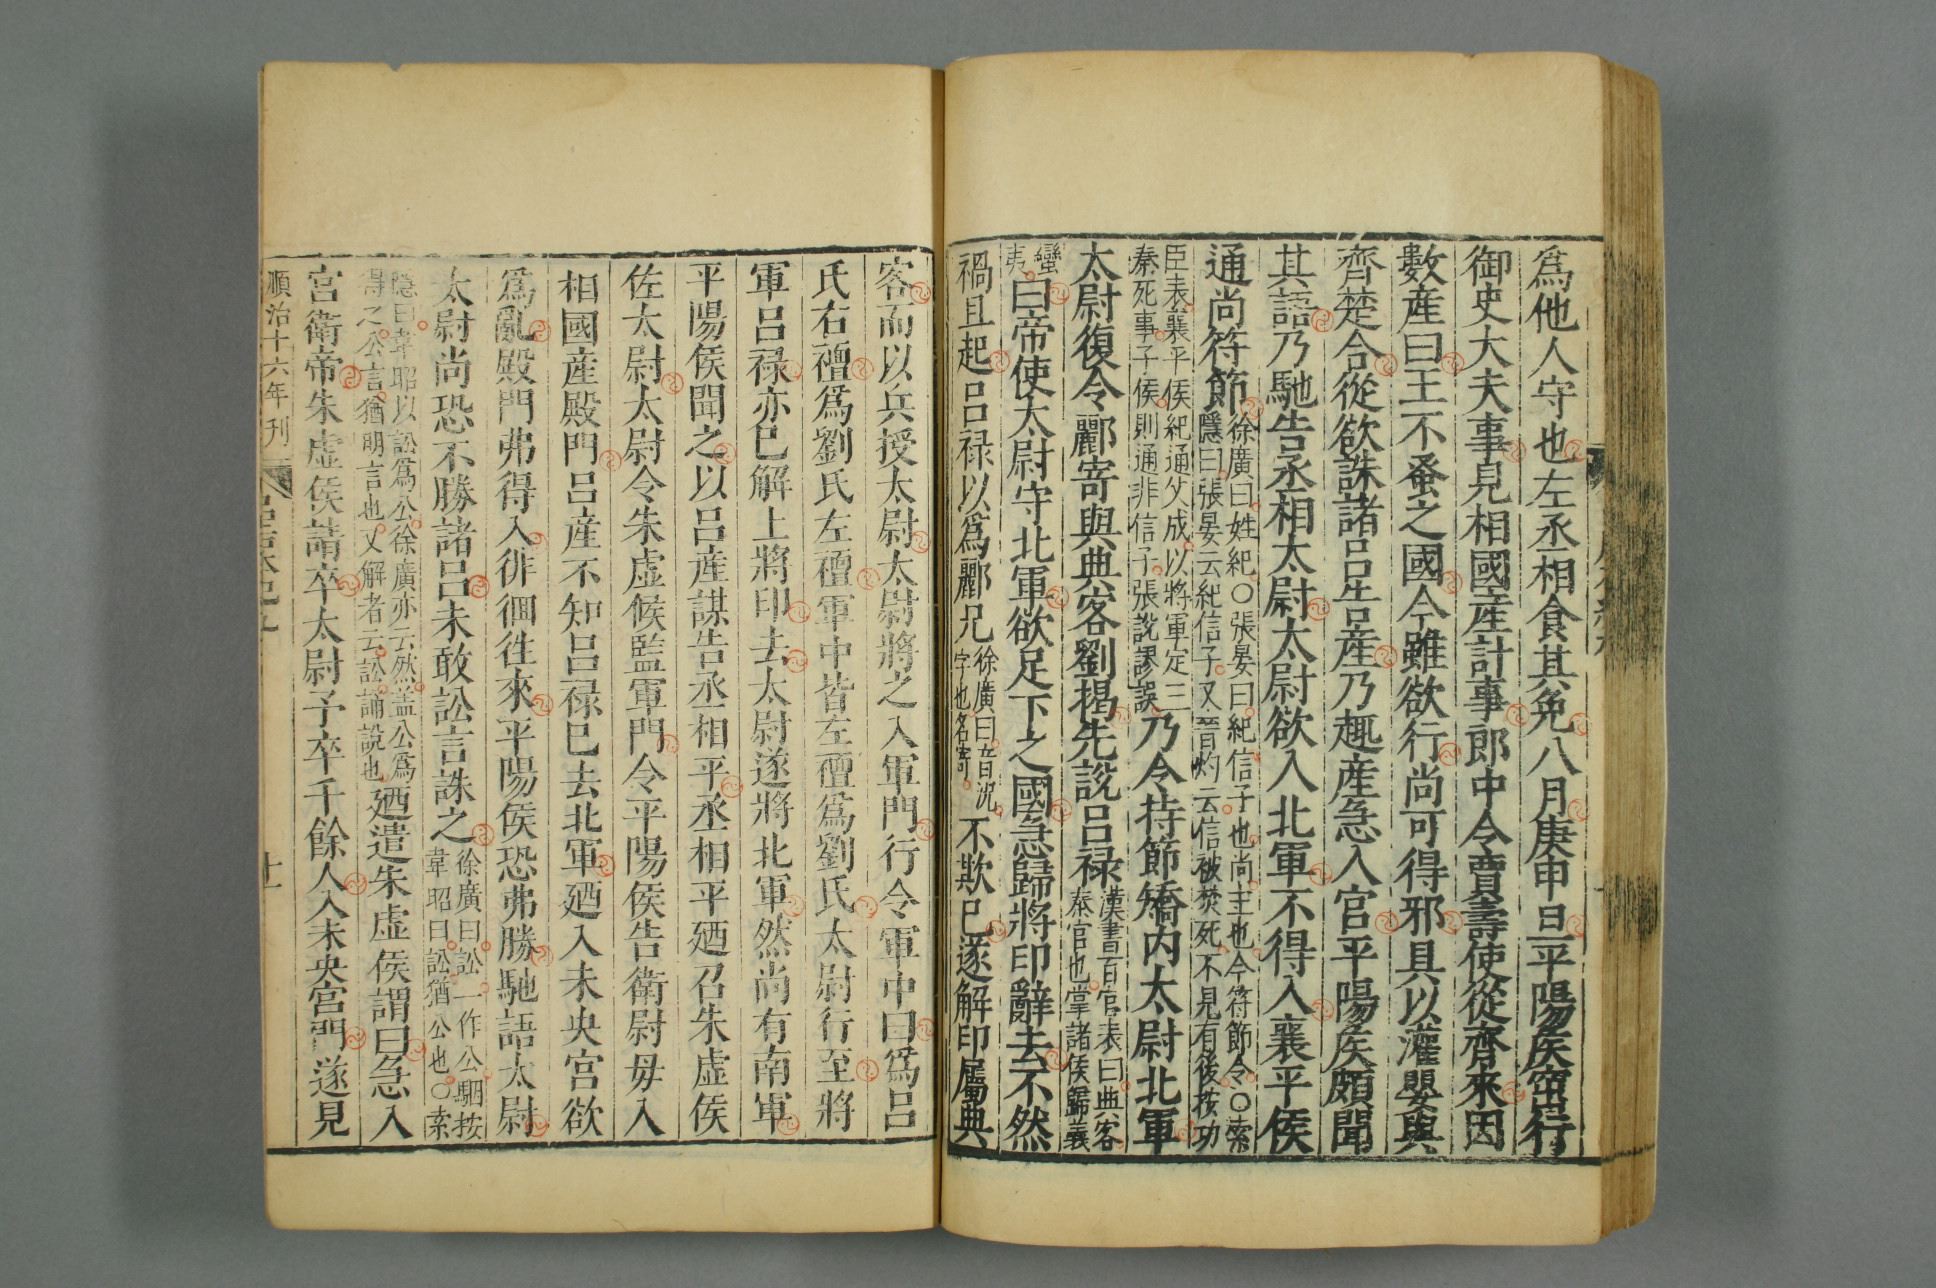 爲他人守也左丞相食其免八月庚申旦平陽侯窋行
御史大夫事見相國産計事郎中令賈壽使從齊來因
數産曰王不蚤之國今雖欲行尚可得邪具以灌嬰與
齊楚合從欲誅諸呂告産乃趣産急入宮平陽侯頗聞
其語乃馳告丞相太尉太尉欲入北軍不得入襄平侯
通尚符節徐廣曰姓紀○張晏曰紀信子也尚主也今符節令○索隱曰張晏云紀信子又晉灼云信被焚死不見有後按功
臣表襄平侯紀通父成以將軍定三秦死事子侯則通非信子張說謬誤乃令持節矯内太尉北軍
太尉復令酈寄與典客劉揭先說呂禄漢書百官表曰典客秦官也掌諸侯歸義
蠻夷曰帝使太尉守北軍欲足下之國急歸將印辭去不然
禍且起呂禄以爲酈兄徐廣曰音况字也名寄不欺已遂解印屬典
客而以兵授太尉太尉將之入軍門行令軍中曰爲呂
氏右襢爲劉氏左襢軍中皆左襢爲劉氏太尉行至將
軍呂禄亦已解上將印去太尉遂將北軍然尚有南軍
平陽侯聞之以呂産謀告丞相平丞相平廼召朱虚侯
佐太尉太尉令朱虚候監軍門令平陽侯告衛尉毋入
相國産殿門呂産不知呂禄已去北軍廼入未央宮欲
爲亂殿門弗得入徘徊徃來平陽侯恐弗勝馳語太尉
太尉尚恐不勝諸呂未敢訟言誅之徐廣曰訟一作公駰按韋昭曰訟猶公也○索
隱曰韋昭以訟爲公徐廣亦云然盖公爲得之公言猶明言也又解者云訟誦說也廼遣朱虚侯謂曰急入
宮衛帝朱虚侯請卒太尉予卒千餘人入未央宮門遂見
順治十六年刊
呂后本紀九
十一